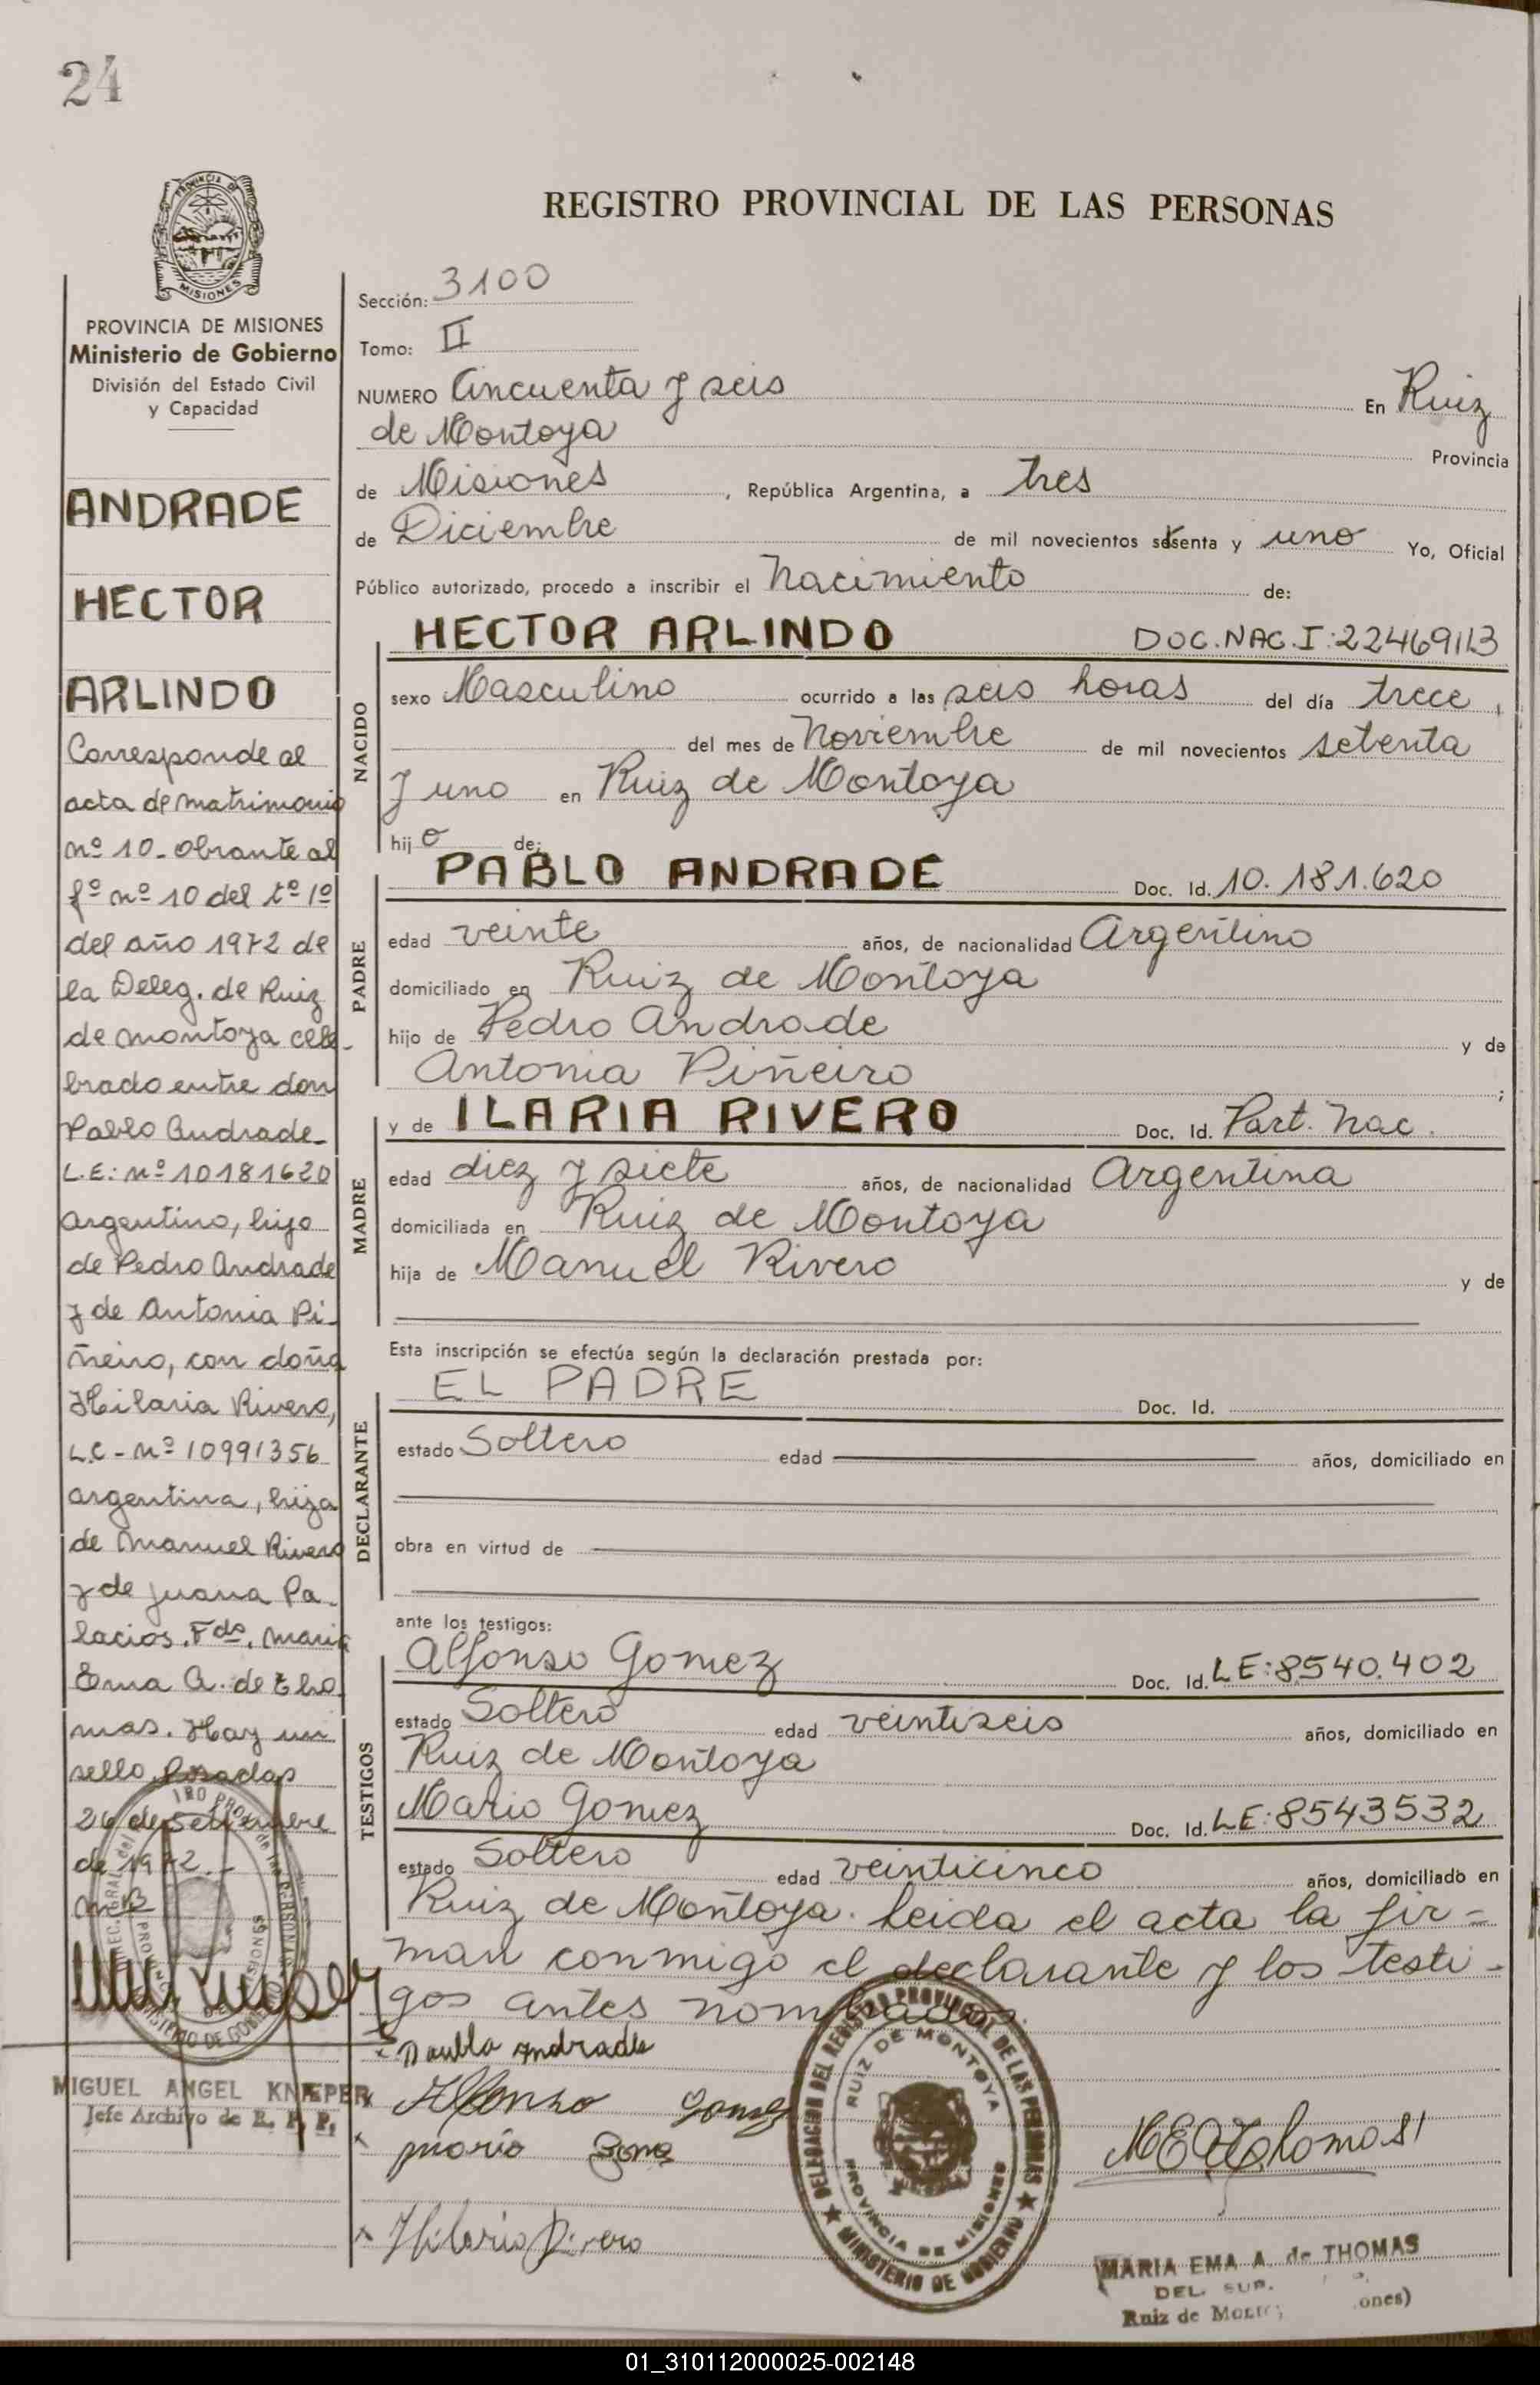 24
PROVINCIA DE MISIONES
REGISTRO PROVINCIAL DE LAS PERSONAS
PROVINCIA DE MISIONES
Ministerio de Gobierno
División del Estado Civil
y Capacidad
ANDRADE
HECTOR
ARLINDO
Corresponde al
acta de matrimonio
nº 10 - obrante al
fº nº 10 del tº 1º
del año 1972 de
la Deleg. de Ruiz
de Montoya cele-
brado entre don
Pablo Andrade -
L.E: nº 10181620
argentino, hijo
de Pedro Andrade
y de Antonia Pi-
ñeiro, con doña
Hilaria Rivero,
L.C - nº 10991356
argentina, hija
de Manuel Rivero
y de Juana Pa-
lacios. Fdo. Maria
Ema A. de Tho
mas. Hay un
sello. Posadas
26 de Setiembre
de 1972. -
MIGUEL ANGEL KNIEPER
Jefe Archivo de R. P. P.
Sección: 3100
Tomo: II
NUMERO Cincuenta y seis En Ruiz
de Montoya Provincia
de Misiones, República Argentina, a tres
de Diciembre de mil novecientos setenta y uno Yo, Oficial
Público autorizado, procedo a inscribir el Nacimiento de:
NACIDO
HECTOR ARLINDO DOC.NAC.I:22469113
sexo Masculino ocurrido a las seis horas del día trece,
del mes de Noviembre de mil novecientos setenta
y uno en Ruiz de Montoya
hijo de:
PADRE
PABLO ANDRADE Doc. Id. 10.181.620
edad veinte años, de nacionalidad Argentino
domiciliado en Ruiz de Montoya
hijo de Pedro Andrade y de
Antonia Piñeiro ;
MADRE
y de ILARIA RIVERO Doc. Id. Part. Nac.
edad diez y siete años, de nacionalidad Argentina
domiciliada en Ruiz de Montoya
hija de Manuel Rivero y de
Esta inscripción se efectúa según la declaración prestada por:
DECLARANTE
EL PADRE Doc. Id.
estado Soltero edad años, domiciliado en
obra en virtud de
ante los testigos:
TESTIGOS
Alfonso Gomez Doc. Id. LE:8540.402
estado Soltero edad veintiseis años, domiciliado en
Ruiz de Montoya
Mario Gomez Doc. Id. LE:8543532
estado Soltero edad veinticinco años, domiciliado en
Ruiz de Montoya. Leida el acta la fir=
man conmigo el declarante y los testi-
gos antes nombrados.
Paublo Andrade
Alfonso Gomez
Mario Gomez
Hilario Rivero
DELEGACION DEL REGISTRO PROVINCIAL DE LAS PERSONAS
RUIZ DE MONTOYA
PROVINCIA DE MISIONES
★ MINISTERIO DE GOBIERNO ★
MEAThomas
MARIA EMA A. de THOMAS
DEL. SUP.
Ruiz de Mont ones)
01_310112000025-002148